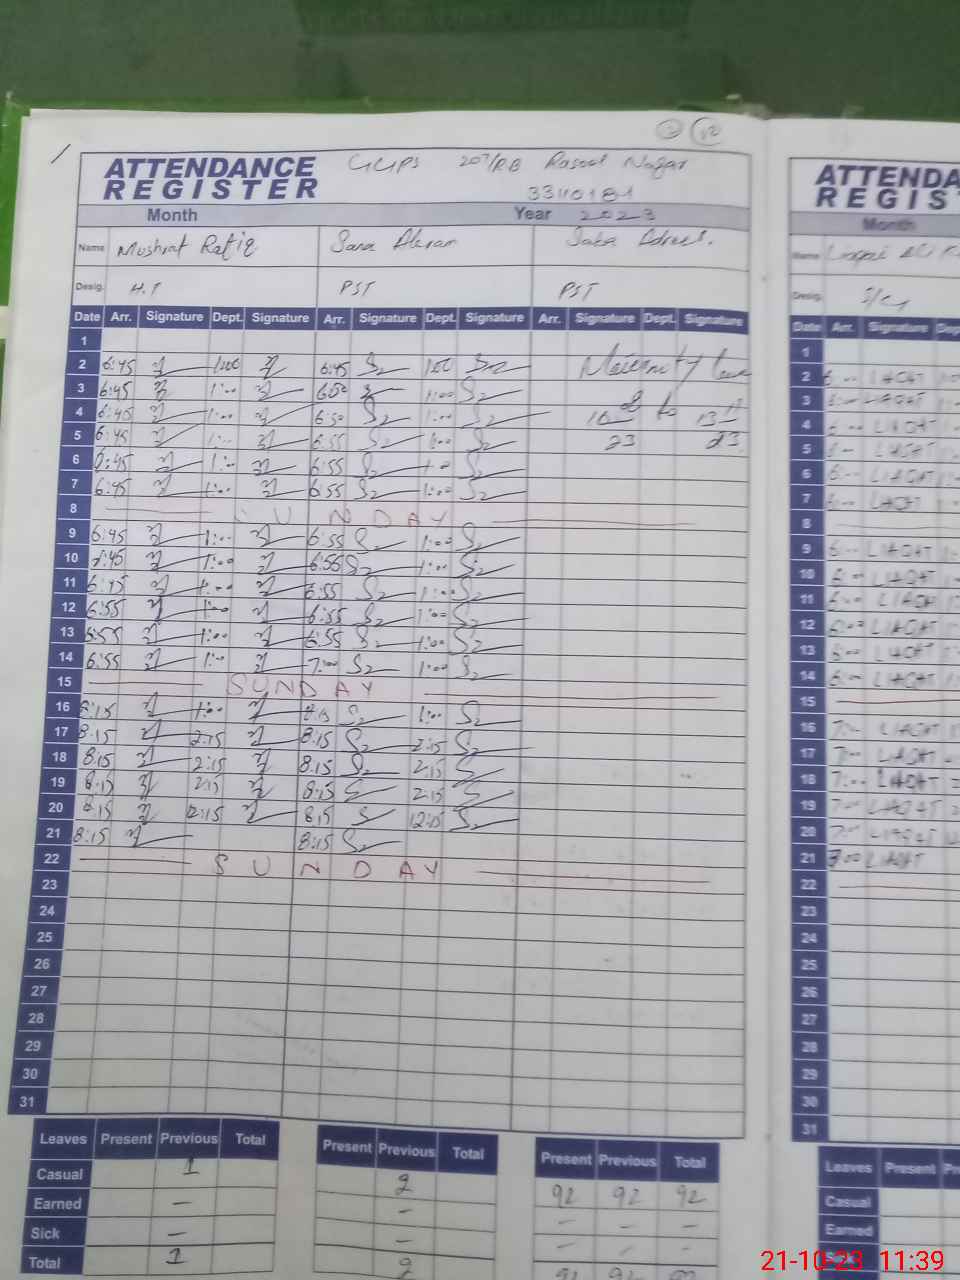 ATTENDANCE REGISTER GGPS 207/RB Rasool Nagar
33110181
Month Year 2023
Name Mushrat Rafiq Sana Akram Saba Adrees.
Desig. H.T PST PST
Date Arr. Signature Dept. Signature Arr. Signature Dept. Signature Arr. Signature Dept. Signature
1
2 6:45 1:00 6:45 1:00 Maternity leave
3 6:45 1:00 6:50 1:00
4 6:45 1:00 6:50 1:00 to
5 6:45 1:00 6:55 1:00 23 23
6 6:45 1:00 6:55 1:00
7 6:45 1:00 6:55 1:00
8 SUNDAY
9 6:45 1:00 6:55 1:00
10 6:45 1:00 6:55 1:00
11 6:45 1:00 6:55 1:00
12 6:55 1:00 6:55 1:00
13 6:55 1:00 6:55 1:00
14 6:55 1:00 7:00 1:00
15 SUNDAY
16 8:15 1:00 8:15 1:00
17 8:15 2:15 8:15 2:15
18 8:15 2:15 8:15 2:15
19 8:15 2:15 8:15 2:15
20 8:15 12:15 8:15 12:15
21 8:15 8:15
22 SUNDAY
23
24
25
26
27
28
29
30
31
Leaves Present Previous Total Present Previous Total Present Previous Total
Casual 1 2 92 92 92
Earned – – – – –
Sick – – – – –
Total 1 2 92 92 92
ATTENDA
REGIS
Month
Name
Desig.
Date Arr. Signature Dep
1
2 6:00 LIAQAT
3 6:00 LIAQAT
4 6:00 LIAQAT
5 6:00 LIAQAT
6 6:00 LIAQAT
7 6:00 LIAQAT
8
9 6:00 LIAQAT
10 6:00 LIAQAT
11 6:00 LIAQAT
12 6:00 LIAQAT
13 6:00 LIAQAT
14 6:00 LIAQAT
15
16 7:00 LIAQAT
17 7:00 LIAQAT
18 7:00 LIAQAT
19 7:00 LIAQAT
20 7:00 LIAQAT
21 7:00 LIAQAT
22
23
24
25
26
27
28
29
30
31
Leaves Present Pre
Casual
Earned
Sick
21-10-23 11:39